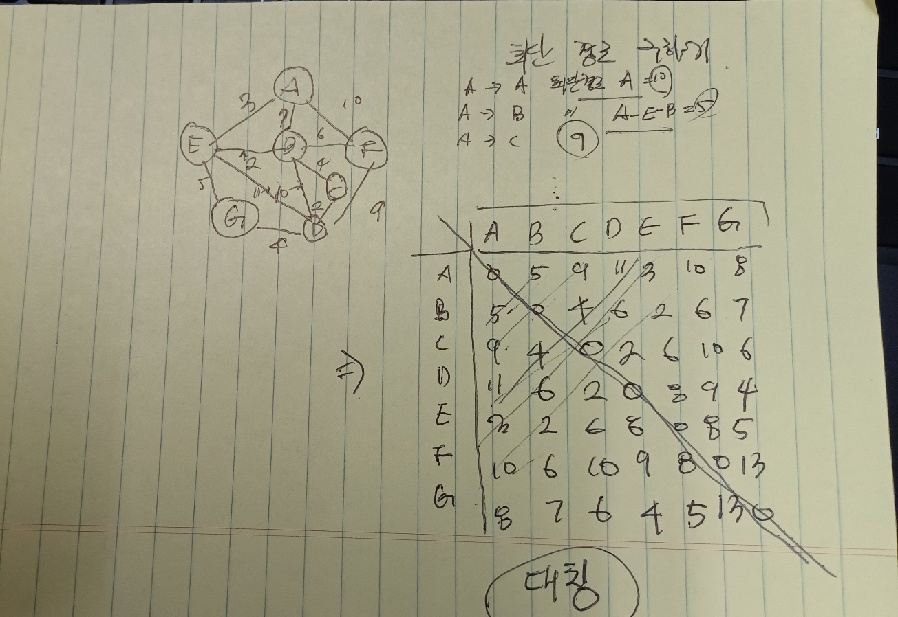 최단 경로 구하기
A → A 최단경로 A = 0
A → B 〃 A-E-B = 5
A → C 9
A
3
10
E
2
6
F
4
5
11
10
2
9
G
D
4
A B C D E F G
A 0 5 9 11 3 10 8
B 5 0 4 6 2 6 7
C 9 4 0 2 6 10 6
D 11 6 2 0 8 9 4
E 3 2 6 8 0 8 5
F 10 6 10 9 8 0 13
G 8 7 6 4 5 13 0
대칭